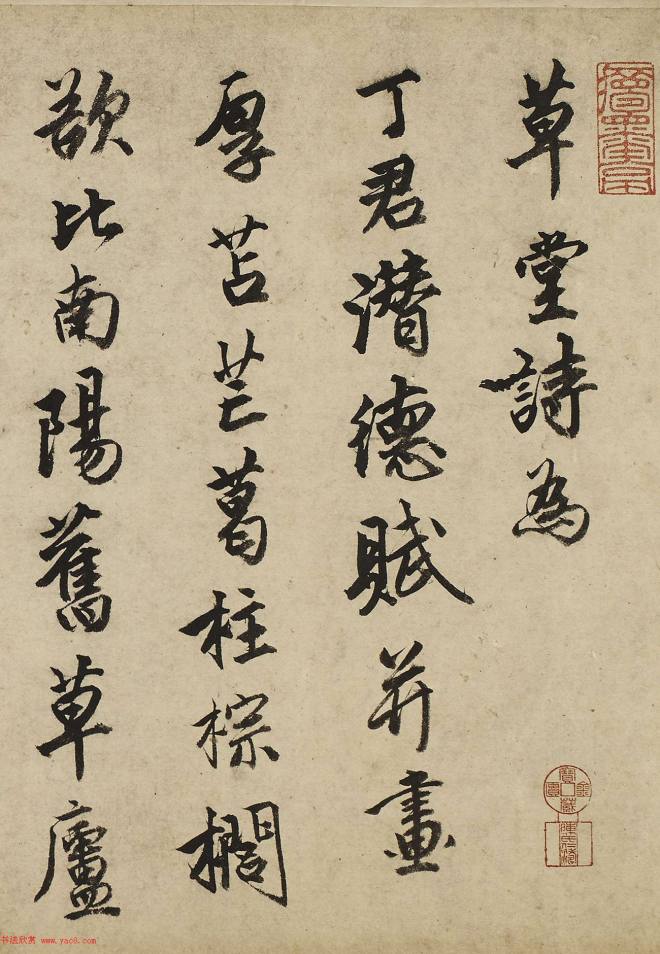 草堂詩為
丁君潛德賦并畫
厚苫芒葛柱棕櫚
欲比南陽舊草廬
书法欣赏 www.yac8.com